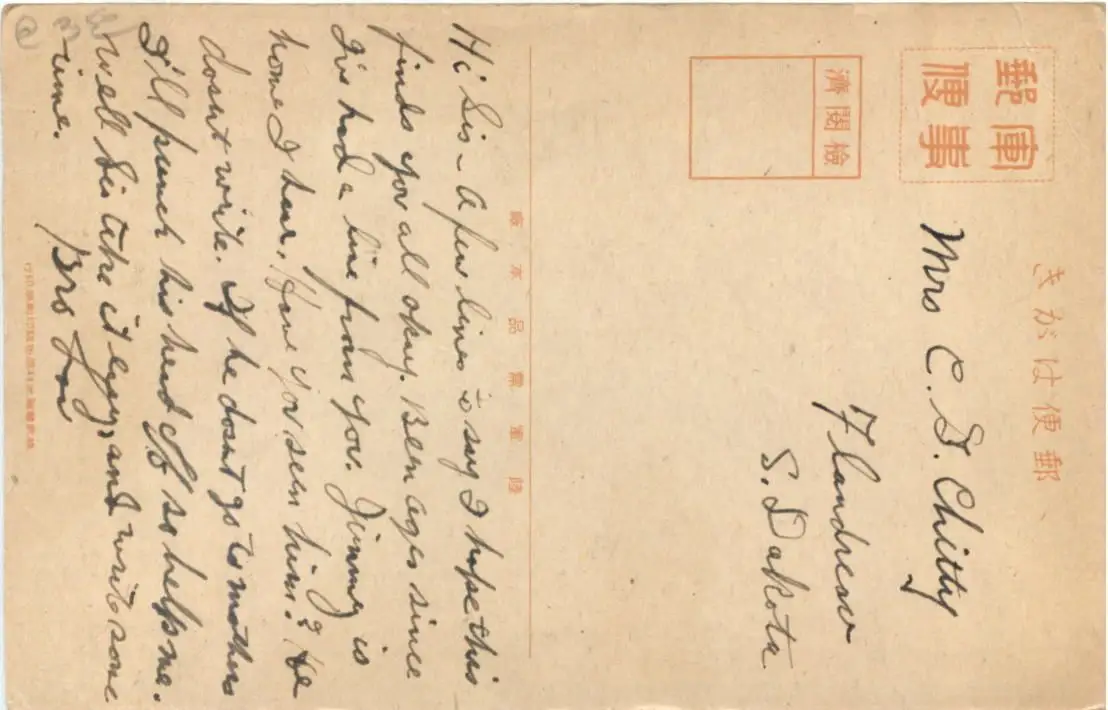 きがは便郵
郵軍
便事
濟閲檢
Mrs C. D. Chitty
Flandreau
S. Dakota
廠本品需軍陸
Hi Sis – A few lines to say I hope this
finds you all okay. Been ages since
I've had a line from you. Jimmy is
home I hear. Have you seen him? He
dosnt write. If he dosnt go to mothers
I'll punch his head off so help me.
Well Sis take it easy, and write some
time.
Bro